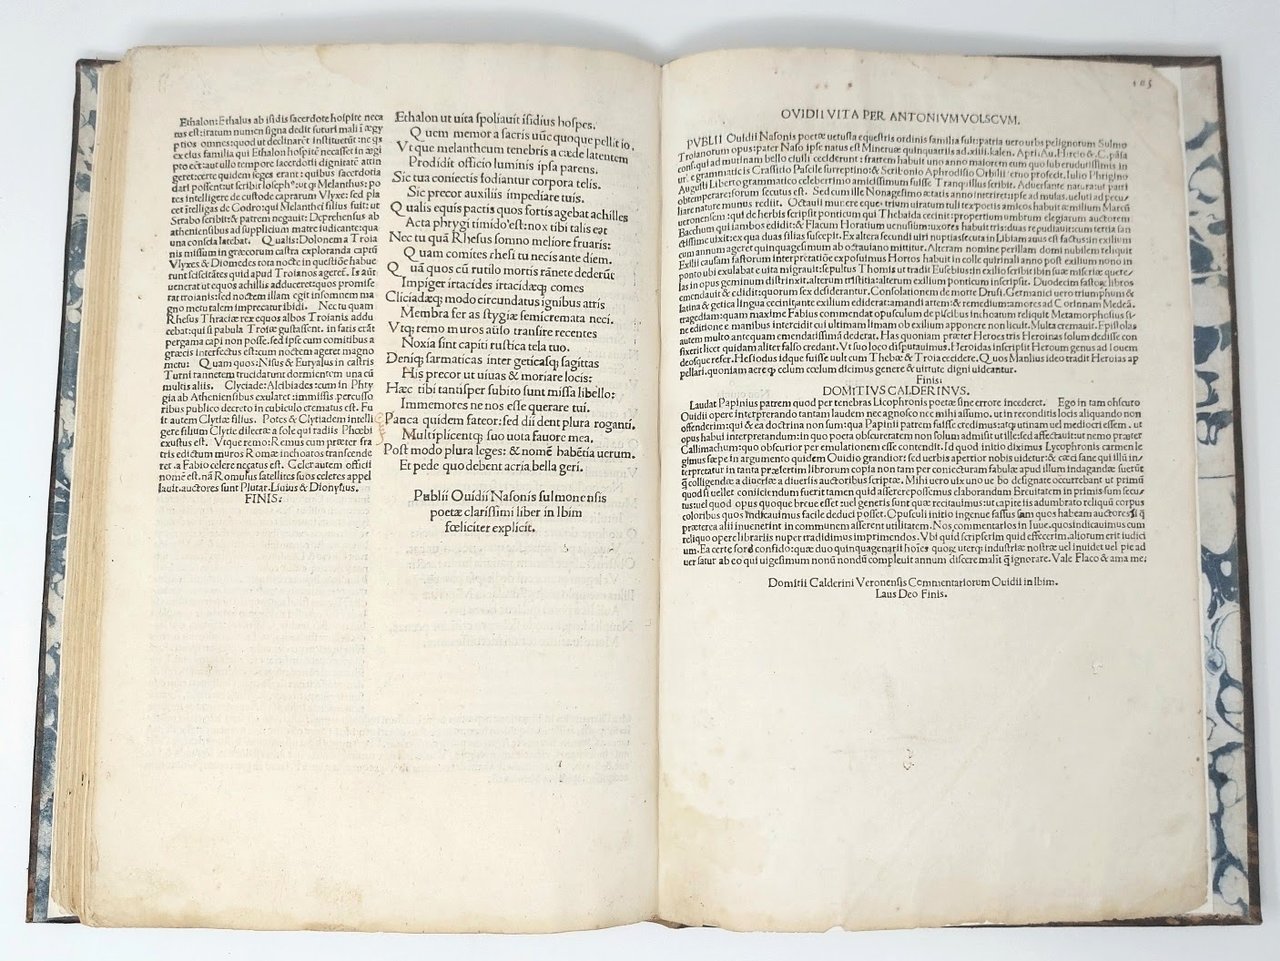 Ethalon: Ethalus ab isidis sacerdote hospite neca
tus est: itatum numen signa dedit futuri mali ī ægy
ptios omnes: quod ut declinarēt institverūt: ne qs
ex eius familia qui Ethalon hospitē necasset in ægi
pto eo: aut ullo tempore sacerdotii dignitatē attin
geret: certe quidem leges erant: quibus sacerdotia
dari possent: ut scribit Ioseph⁹: ut q; Melanthus: po
tes intelligere de custode caprarum Vlyxe: sed pla
cet itelligas de Codro: qui Melanthei filius fuit: ut
Setabo scribit: & patrem negauit: Deprehensus ab
atheniensibus ad supplicium matre iudicante: qua
una conscia latebat. Qualis: Dolonem a Troia
nis missum in græcorum castra exploranda captū
Vlyxes & Diomedes tota nocte in questiōe habue
runt sciscitātes quid apud Troianos agerēt. Is aūt
uenerat ut equos achillis adduceret: quos promise
rat troianis: sed noctem illam egit insomnem ma
gno metu: talem imprecatur ibidi. Nec tu quam
Rhesus Thraciæ rex equos albos Troianis addu
cebat: qui si pabula Troiæ gustassent. in fatis erāt
pergama capi non posse. sed ipse cum comitibus a
græcis interfectus est: cum noctem ageret magno
metu: Quam quos: Nisus & Euryalus in castris
Turni tannetem trucidarunt dormientem una cū
multis aliis. Clyciade: Alcibiades: cum in Phry
gia ab Atheniensibus exularet ūmmissis. percusso
ribus publico decreto in cubiculo crematus est. Fu
it autem Clytiæ filius. Potes & Clytiadem intelli
gere filium Clytie dilectæ a sole qui radiis Phœbi
exustus est. Vtque remo: Remus cum præter fra
tris edictum muros Romæ inchoatos transcende
ret. a Fabio celere necatus est. Celer autem officii
nomē est. nā Romulus satellites suos celeres appel
lauit. auctores sunt Plutar. Liuius & Dionysius.
FINIS:
Ethalon ut uita spoliauit isidius hospes.
Quem memor a sacris nūc quoque pellit io.
Vtque melantheum tenebris a cæde latentem
Prodidit officio luminis ipsa parens.
Sic tua coniectis fodiantur corpora telis.
Sic precor auxiliis impediare tuis.
Qualis equis pactis quos fortis agebat achilles
Acta phrygi timido est: nox tibi talis eat
Nec tu quā Rhesus somno meliore fruaris:
Quam comites rhesi tu necis ante diem.
Quā quos cū rutilo mortis rānete dederūt
Impiger irtacides irtacidæq; comes
Cliciadæq; modo circundatus ignibus atris
Membra fer as stygiæ semicremata neci.
Vtq; remo muros auso transire recentes
Noxia sint capiti rustica tela tuo.
Deniq; sarmaticas inter geticasq; sagittas
His precor ut uiuas & moriare locis:
Hæc tibi tantisper subito sunt missa libello:
Immemores ne nos esse querare tui.
Pauca quidem fateor: sed dii dent plura roganti.
Multiplicentq; suo uota fauore mea.
Post modo plura leges: & nomē habētia uerum.
Et pede quo debent acria bella geri.
Publii Ouidii Nasonis sulmonensis
poetæ clarissimi liber in Ibim
fœliciter explicit.
105
OVIDII VITA PER ANTONIVM VOLSCVM.
PVBLII Ouidii Nasonis poetæ uetusta equestris ordinis familia fuit: patria uero urbs pelignorum Sulmo
Troianorum opus: pater Naso ipse natus est Mineruæ quinquatriis ad .xiiii. kalen. Apri. Au. Hircio & C. pāsa
cons. qui ad mutinam bello ciuili ceciderunt: frattem habuit uno anno maiorem
grammaticis Crassitio Pasicle surreptino: & Scribonio Aphrodisio Orbilii seruo profecit. Iulio Phrigino
Augusti Liberto grammatico celeberrimo amicissimum fuisse Tranquillus scribit. Aduersante natura: ut patri
obtemperaret: forum secutus est. Sed cum ille Nonagesimo ætatis anno interiret: ipse ad musas. ueluti ad pecu
liare natura munus rediit. Octauii mūrere eque-trium uiratum tulit: ex poetis amicos habuit æmilium Marcū
ueronensem: qui de herbis scripsit ponticum qui Thebaida cecinit: propertium umbrum elegiarum auctorem
Bacchum qui iambos edidit: & Flacum Horatium uenusinum: uxores habuit tris: duas repudiauit: cum tertia san
ctissime uixit: ex qua duas filias suscepit. Ex altera secundi uiri nuptias secuta in Libiam auus est factus: in exilium
cum annum ageret quinquagesimum ab octauiano mittitur. Alteram nomine perillam docuit uersus facere.
Exilii causam fastorum interpretatiōe exposuimus Hortos habuit in colle quirinali anno post exilium nono in
ponto ubi exulabat e uita migrauit: sepultus Thomis ut tradit Eusebius: in exilio scribit ibin suæ miseriæ quere/
las in opus geminum distrinxit. alterum tristitia: alterum exilium ponticum inscripsit. Duodecim fastoꝝ libros
emendauit & edidit: quorum sex desiderantur. Consolationem de morte Drusi. Germanici uero triumphum &
latina & getica lingua cecinit: ante exilium ediderat: amandi artem: & remedium: amores ad Corinnam Medeā.
tragediam: quam maxime Fabius commendat opusculum de piscibus inchoatum reliquit Metamorphoseius si/
ne editione e manibus intercidit cui ultimam limam ob exilium apponere non licuit. Multa cremauit. Epistolas
autem multo antequam emendarissimā dederat. Has quoniam præter Heroes tris Heroinas solum dedisse con
fixerit: licet quidam aliter falso credant. Vt suo loco disputauimus. Heroidas inscripsit Heroum genus ad Iouem
deosque refer. Hesiodus idque fuisse uult cum Thebæ & Troia cecidere. Quos Manlius ideo tradit Heroias ap
pellari. quoniam acreq; celum cœlum dicimus genere & uirtute digni uideantur.
Finis:
DOMITIVS CALDERINVS.
Laudat Papinius patrem quod per tenebras Licophronis poetæ sine errore incederet. Ego in tam obscuro
Ouidii opere interpretando tantam laudem nec agnosco nec mihi assumo. ut in reconditis locis aliquando non
offenderim: qui & ea doctrina non sum: qua Papinii patrem fuisse credimus: atq; utinam uel mediocri essem. ut
opus habui interpretandum: in quo poeta obscuretatem non solum admisit ut tulit: sed affectauit: ut nemo præter
Callimachum: quo obscurior per emulationem esse contendit. Id quod initio diximus Lycophronis carmen le
gimus sæpe in argumento quidem Ouidii grandior: sed uerbis apertior nobis uidetur: & cæci sane qui illum in/
terpretatur in tanta præsertim librorum copia non tam per coniecturam fabulæ apud illum indagandæ fuerūt
q̄ colligendæ a diuersæ a diuersis auctoribus scriptæ. Mihi uero uix uno ue bo designate occurrebant ut primū
quod si uellet coniiciendum fuerit tamen quid asseres: possemus elaborandum Breuitatem in primis sum secu/
tus: uel quod opus quoque breue esset: uel generis sunt quæ recitauimus: ut capite iis adumbrato reliquū corpus
coloribus quos indicauimus facile deduci posset. Opusculi initio ingenue fassus sum quos habeam auctores: si q̄
præterea alii inuenerint in communem asserent utilitatem. Nos commentarios in Iuue. quos indicauimus cum
reliquo opere librariis nuper tradidimus imprimendos. Vbi quid scripserim quid effecerim. aliorum erit iudici
um. Ea certe sorē confido: quæ duo quinquagenarii hoīes quoq; uterq; industriæ nostræ uel inuidet uel pie ad
uersatur ab eo qui uigesimum nonū nondū compleuit annum discere malit q̄ ignorare. Vale Flaco & ama me.
Domitii Calderini Veronensis Commentariorum Ouidii in Ibim.
Laus Deo Finis.